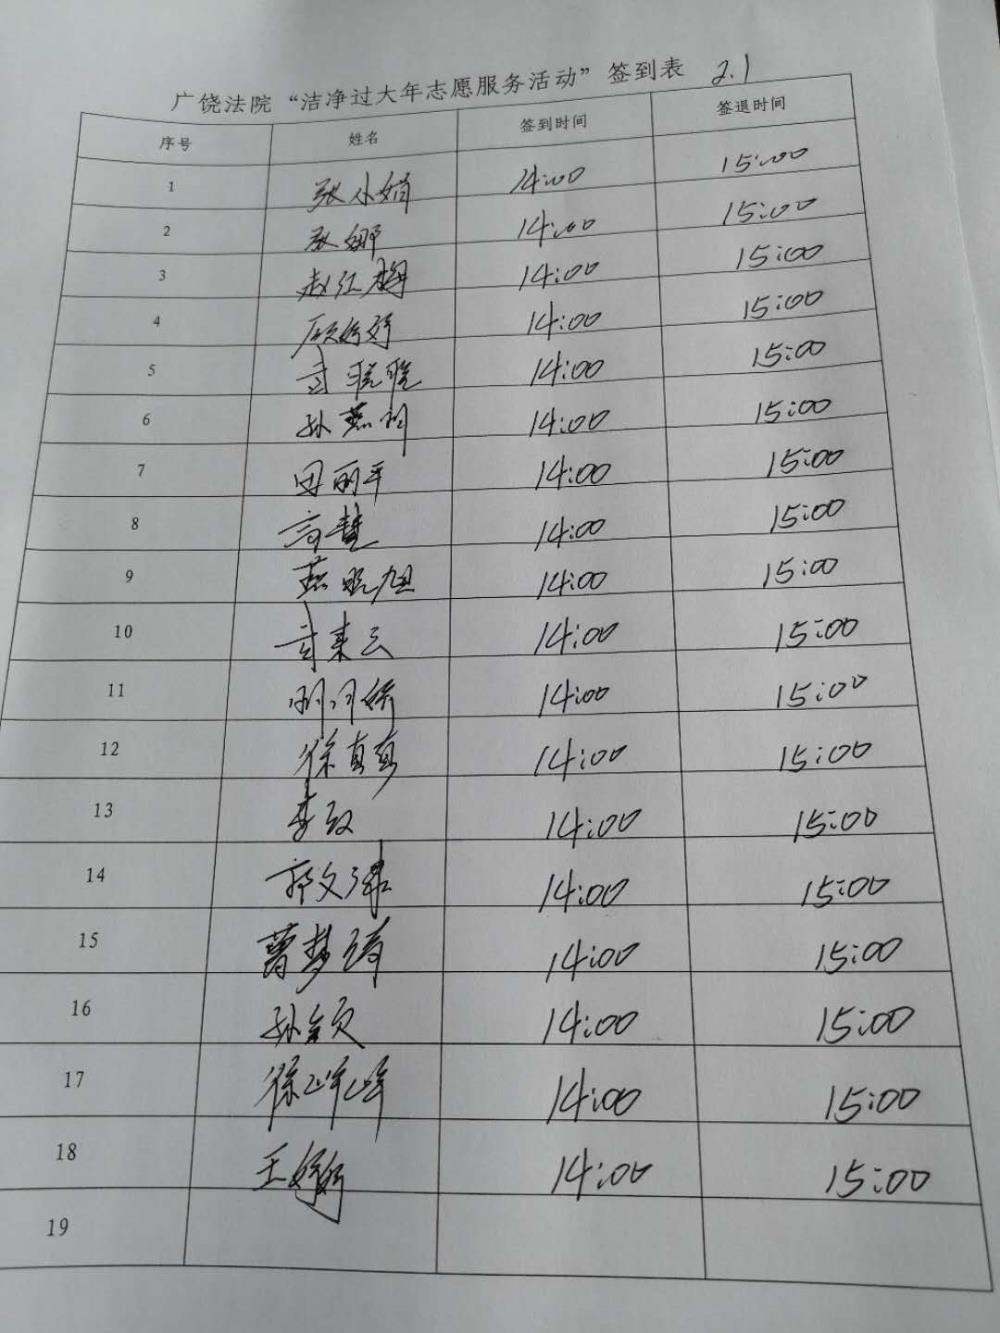 广饶法院“洁净过大年志愿服务活动”签到表 2.1
序号 姓名 签到时间 签退时间
1 张小娟 14:00 15:00
2 张娜 14:00 15:00
3 赵红梅 14:00 15:00
4 顾婷婷 14:00 15:00
5 14:00 15:00
6 孙燕 14:00 15:00
7 田丽平 14:00 15:00
8 高慧 14:00 15:00
9 燕晓旭 14:00 15:00
10 14:00 15:00
11 14:00 15:00
12 徐真真 14:00 15:00
13 李政 14:00 15:00
14 郭文 14:00 15:00
15 曹梦琦 14:00 15:00
16 孙 14:00 15:00
17 徐 14:00 15:00
18 王婷婷 14:00 15:00
19